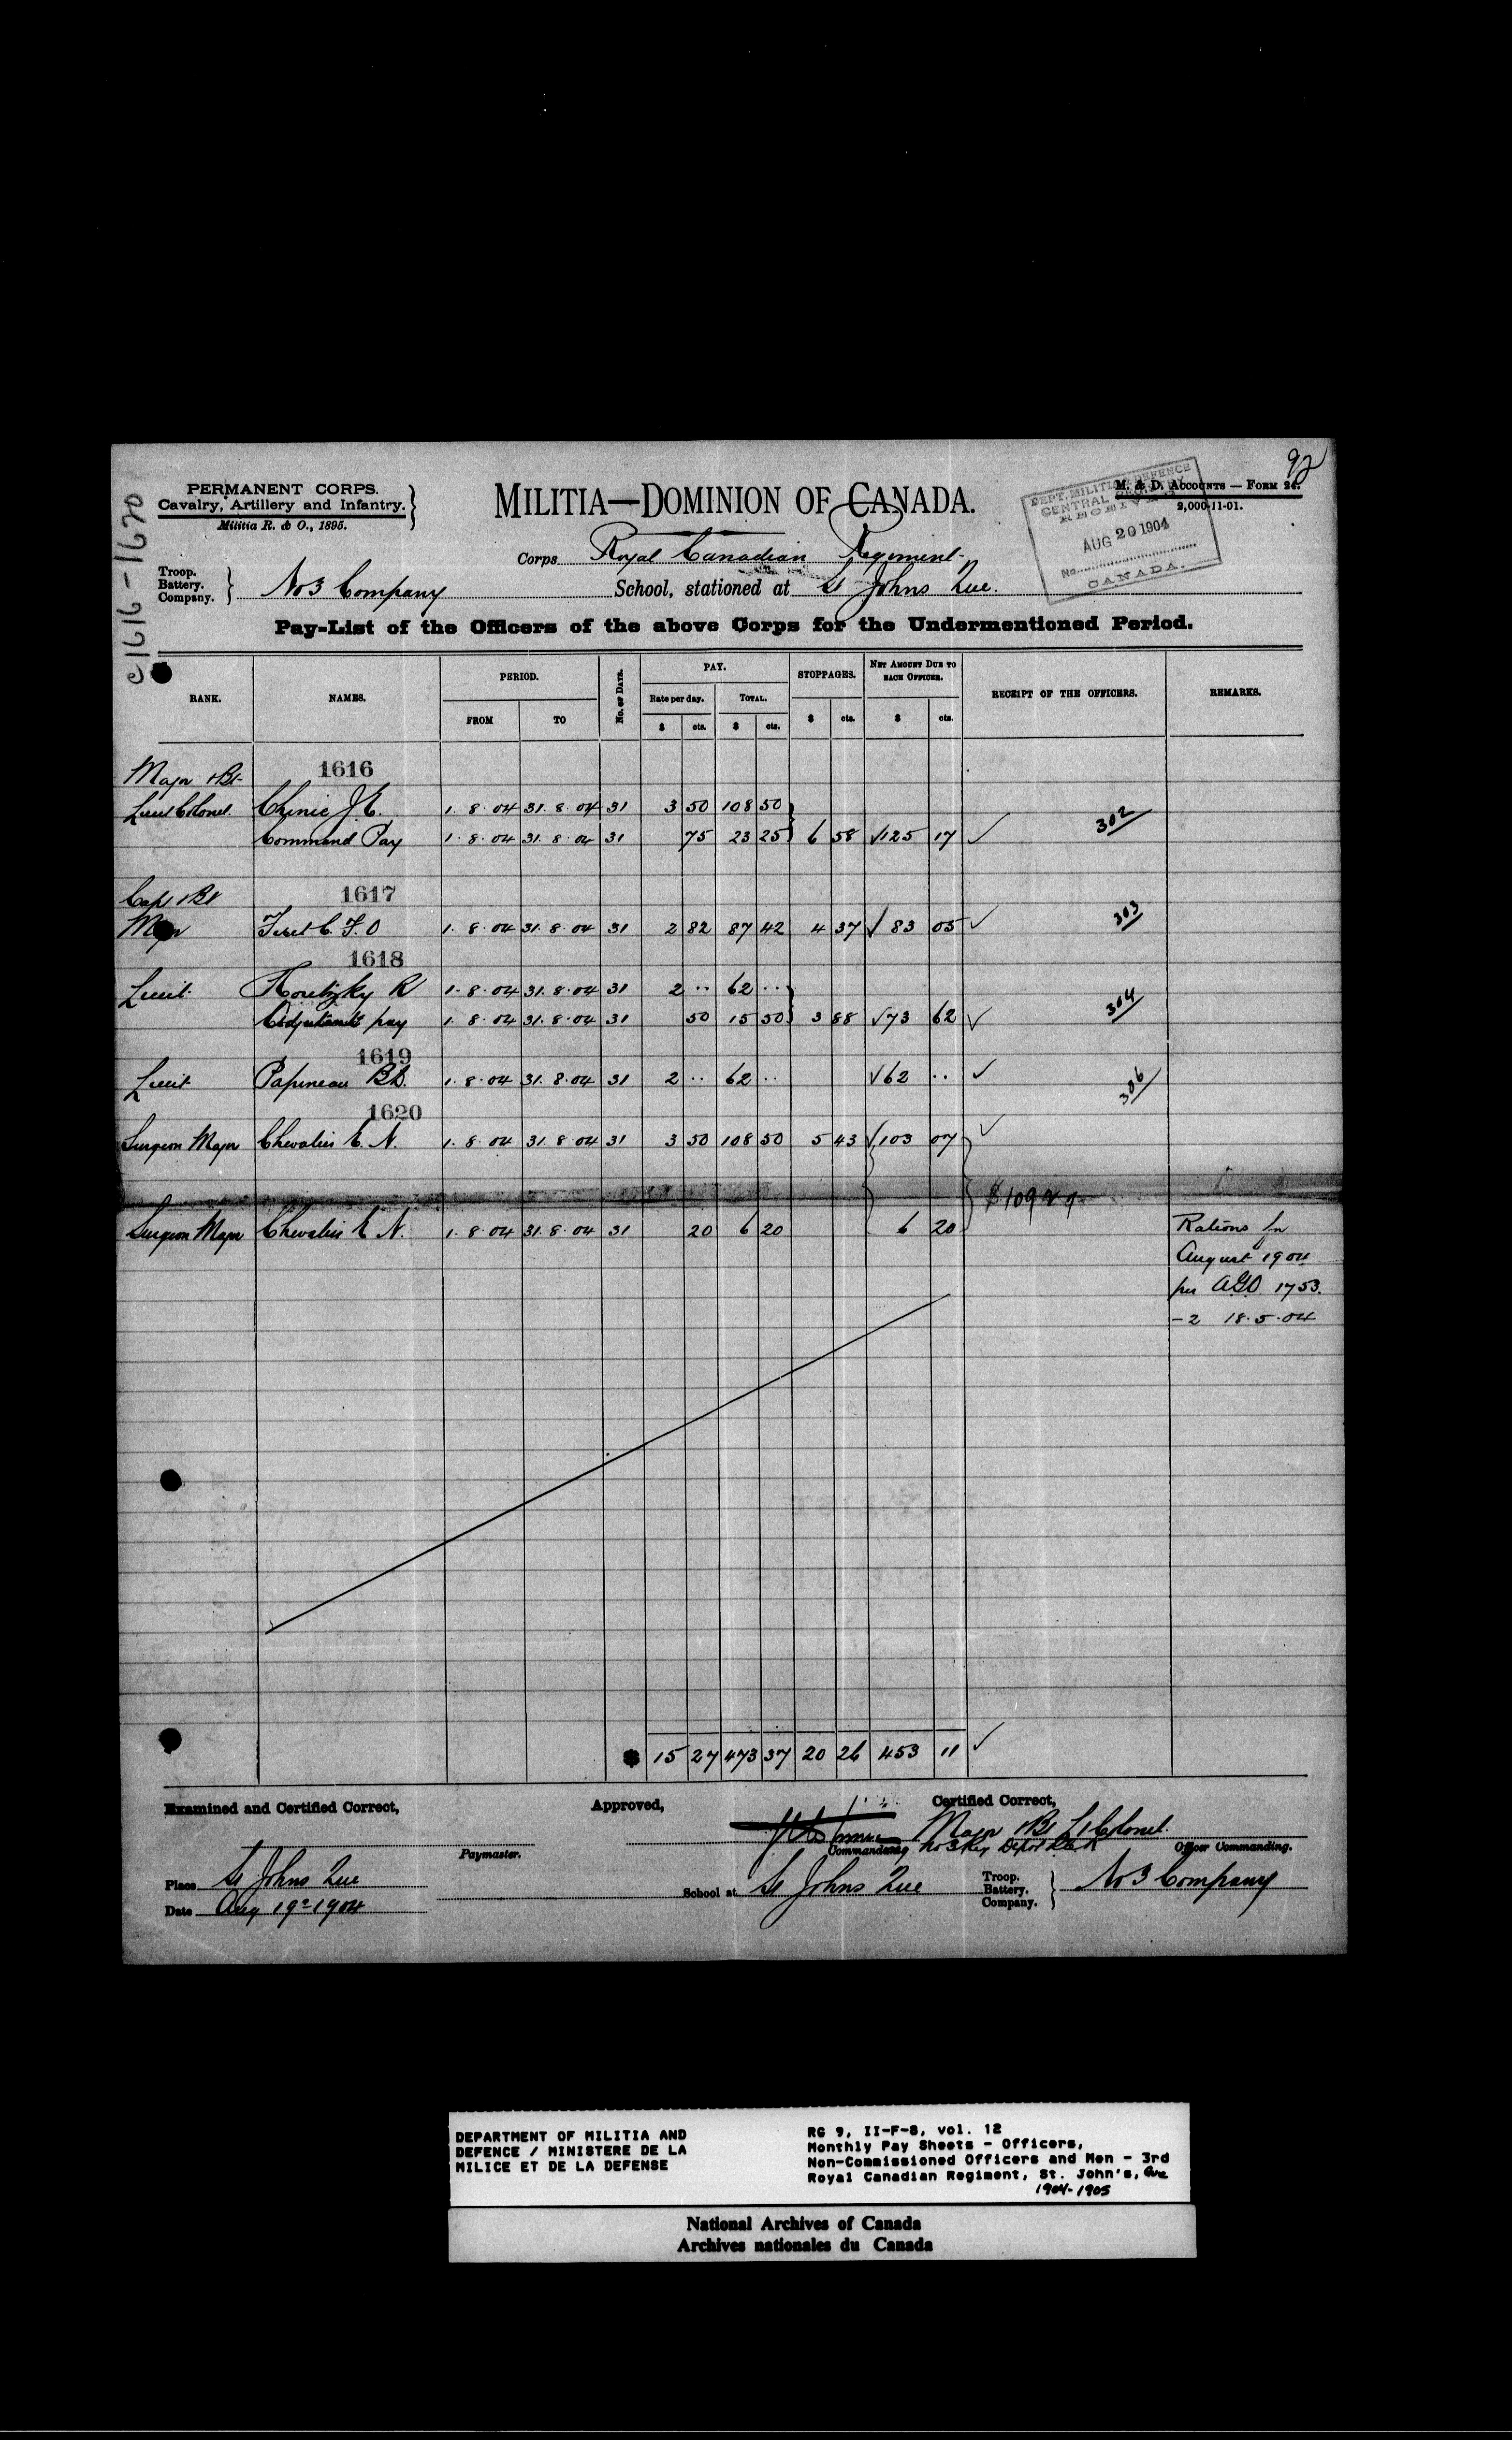 92
PERMANENT CORPS.
Cavalry, Artillery and Infantry.
Militia R. & O., 1895.
MILITIA—DOMINION OF CANADA.
M. & D. ACCOUNTS — FORM 24.
2,000-11-01.
DEPT. MILITIA & DEFENCE
CENTRAL
RECEIVED
AUG 20 1904
No.
CANADA.
c1616-1620
Corps Royal Canadian Regiment
Troop. Battery. Company. } No 3 Company School, stationed at St Johns Que.
Pay-List of the Officers of the above Corps for the Undermentioned Period.
RANK. NAMES. PERIOD. No. OF DAYS. PAY. STOPPAGES. NET AMOUNT DUE TO EACH OFFICER. RECEIPT OF THE OFFICERS. REMARKS.
FROM TO Rate per day. TOTAL.
$ cts. $ cts. $ cts. $ cts.
Major & Bt 1616
Lieut Colonel. Chinic J. E. 1. 8. 04 31. 8. 04 31 3 50 108 50
Command Pay 1. 8. 04 31. 8. 04 31 75 23 25 6 58 √125 17 ✓ 302
Capt & Bt 1617
Major C. F. O 1. 8. 04 31. 8. 04 31 2 82 87 42 4 37 √ 83 05 ✓ 303
1618
Lieut R 1. 8. 04 31. 8. 04 31 2 .. 62 ..
Adjutants pay 1. 8. 04 31. 8. 04 31 50 15 50 3 88 √73 62 ✓ 304
1619
Lieut Papineau 1. 8. 04 31. 8. 04 31 2 .. 62 .. √62 .. ✓ 306
1620
Surgeon Major Chevalier E. N. 1. 8. 04 31. 8. 04 31 3 50 108 50 5 43 √103 07 ✓
$109 27
Surgeon Major Chevalier E. N. 1. 8. 04 31. 8. 04 31 20 6 20 6 20 Rations for
August 1904
per AGO 1753.
-2 18.5.04
$ 15 27 473 37 20 26 453 11 ✓
Examined and Certified Correct, Approved, Certified Correct,
Major & Bt Lt Colonel.
Paymaster. Commanding No 3 Regl Depot RCR Officer Commanding.
Place St Johns Que School at St Johns Que Troop. Battery. Company. } No 3 Company
Date Aug 19th 1904
DEPARTMENT OF MILITIA AND
DEFENCE / MINISTERE DE LA
MILICE ET DE LA DEFENSE
RG 9, II-F-8, vol. 12
Monthly Pay Sheets - Officers,
Non-Commissioned Officers and Men - 3rd
Royal Canadian Regiment, St. John's, Que
1904-1905
National Archives of Canada
Archives nationales du Canada